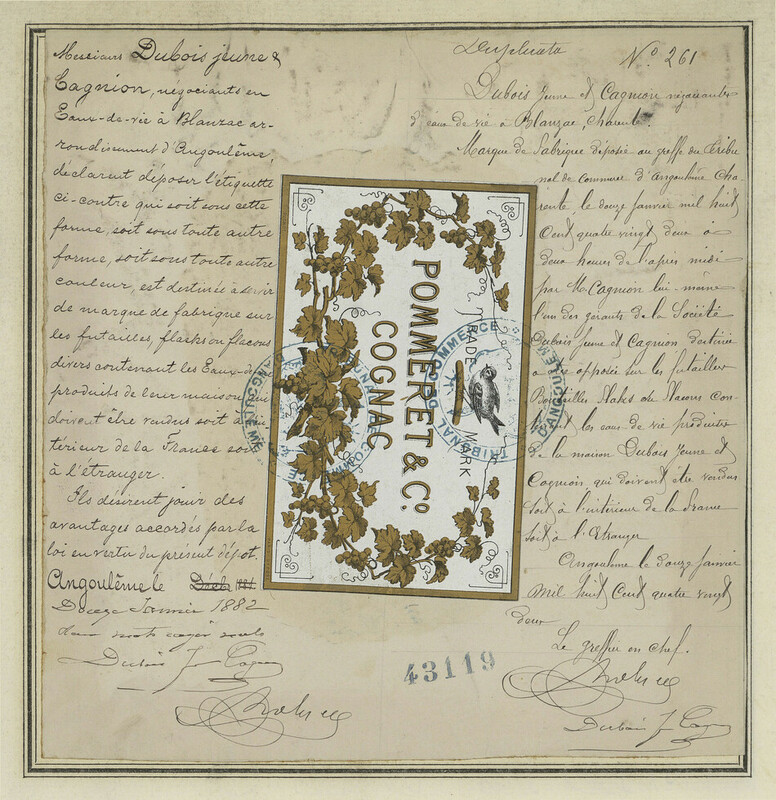 Messieurs Dubois jeune &
Cagnion, négociants en
Eaux-de-vie à Blanzac ar-
rondissement d'Angoulême,
déclarent déposer l'étiquette
ci-contre qui soit sous cette
forme, soit sous toute autre
forme, soit sous toute autre
couleur, est destinée à servir
de marque de fabrique sur
les futailles, flasks ou flacons
divers contenant les Eaux-de-
produits de leur maison qui
doivent être vendus soit à
térieur de la France soit
à l'étranger.
Ils désirent jouir des
avantages accordés par la
loi en vertu du présent dépôt.
Angoulême le
Douze Janvier 1882
Dubois Je Cagnion
Duplicata
N° 261
Dubois Jeune et Cagnion négociants
d'eaux de vie à Blanzac, Charente.
Marque de fabrique déposée au greffe du Tribu
nal de commerce d'Angoulême Cha
rente, le douze janvier mil huit
Cent quatre vingt deux à
deux heures de l'après midi
par M. Cagnion lui-même
l'un des gérants de la Société
Dubois Jeune et Cagnion destinée
à être apposée sur les futailles
Bouteilles Flasks ou Flacons con-
les eaux de vie produits
de la maison Dubois Jeune et
Cagnion qui doivent être vendus
soit à l'intérieur de la France
soit à l'Etranger
Angoulême le douze janvier
mil huit Cent quatre vingt
deux
Le greffier en chef.
Dubois Je Cagnion
POMMERET & Co.
COGNAC
TRADE MARK
TRIBUNAL DE COMMERCE
ANGOULÊME
43119